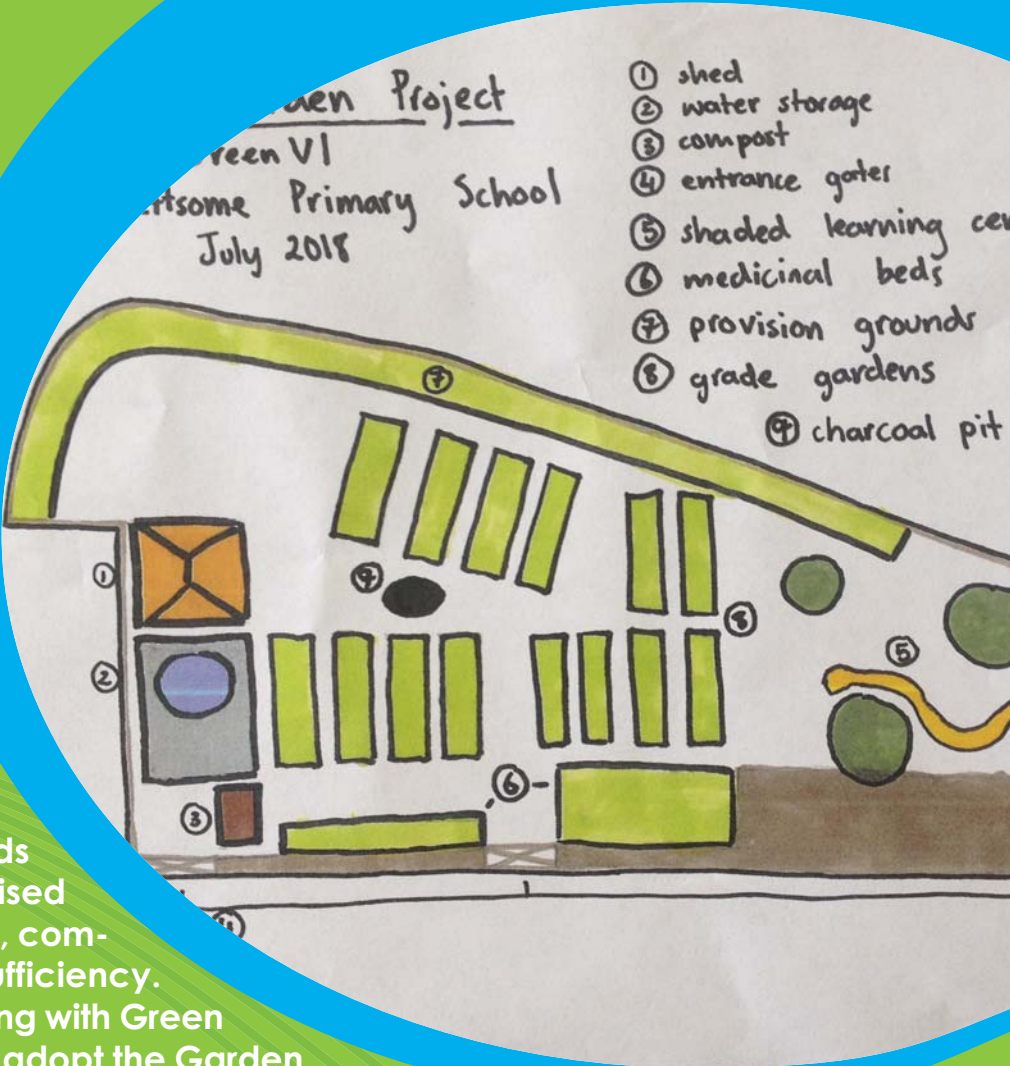 den Project
reen VI
rtsome Primary School
July 2018
① shed
② water storage
③ compost
④ entrance gates
⑤ shaded learning cen
⑥ medicinal beds
⑦ provision grounds
⑧ grade gardens
⑨ charcoal pit
⑦
①
⑨
⑧
②
⑤
⑥
③
④
ds
ised
, com-
ufficiency.
ng with Green
adopt the Garden